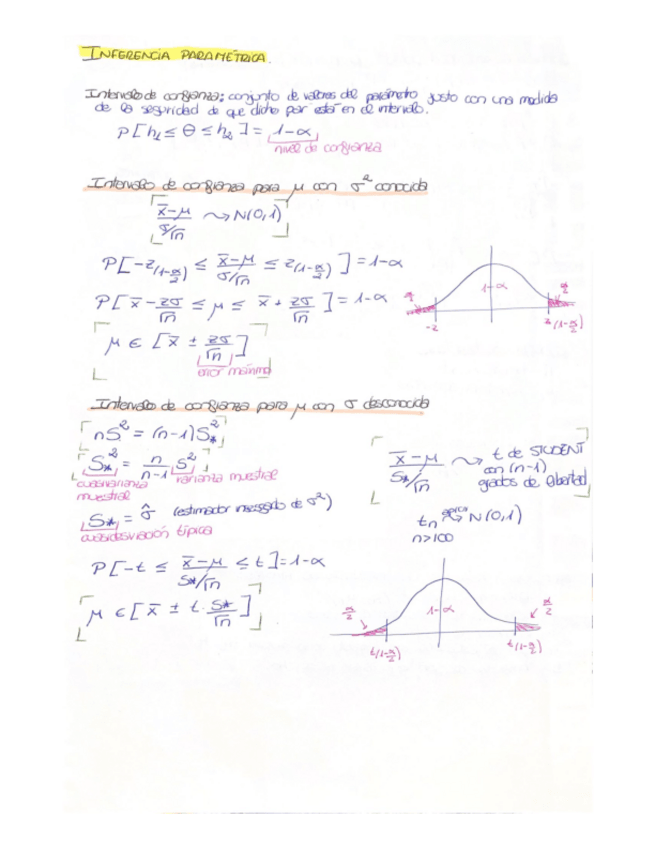 INFERENCIA PARAMÉTRICA.
Intervalo de confianza: conjunto de valores del parámetro justo con una medida
de la seguridad de que dicho par está en el intervalo.
P[h₁ ≤ θ ≤ h₂] = 1-α
nivel de confianza
Intervalo de confianza para μ con σ² conocida
x̄-μ / σ/√n ⤳ N(0,1)
P[-z(1-α/2) ≤ x̄-μ / σ/√n ≤ z(1-α/2)] = 1-α
P[x̄ - zσ/√n ≤ μ ≤ x̄ + zσ/√n] = 1-α
α/2 1-α α/2
-z z(1-α/2)
μ ∈ [x̄ ± zσ/√n]
error máximo
Intervalo de confianza para μ con σ desconocida
nS² = (n-1)S*²
S*² = n/n-1 S²
cuasivarianza muestral
varianza muestral
S* = σ̂ (estimador insesgado de σ²)
cuasidesviación típica
x̄-μ / S*/√n ⤳ t de STUDENT
con (n-1)
grados de libertad
tn aprox ⤳ N(0,1)
n>100
P[-t ≤ x̄-μ / S*/√n ≤ t] = 1-α
μ ∈ [x̄ ± t· S*/√n]
α/2 1-α α/2
t(1-α/2) t(1-α/2)